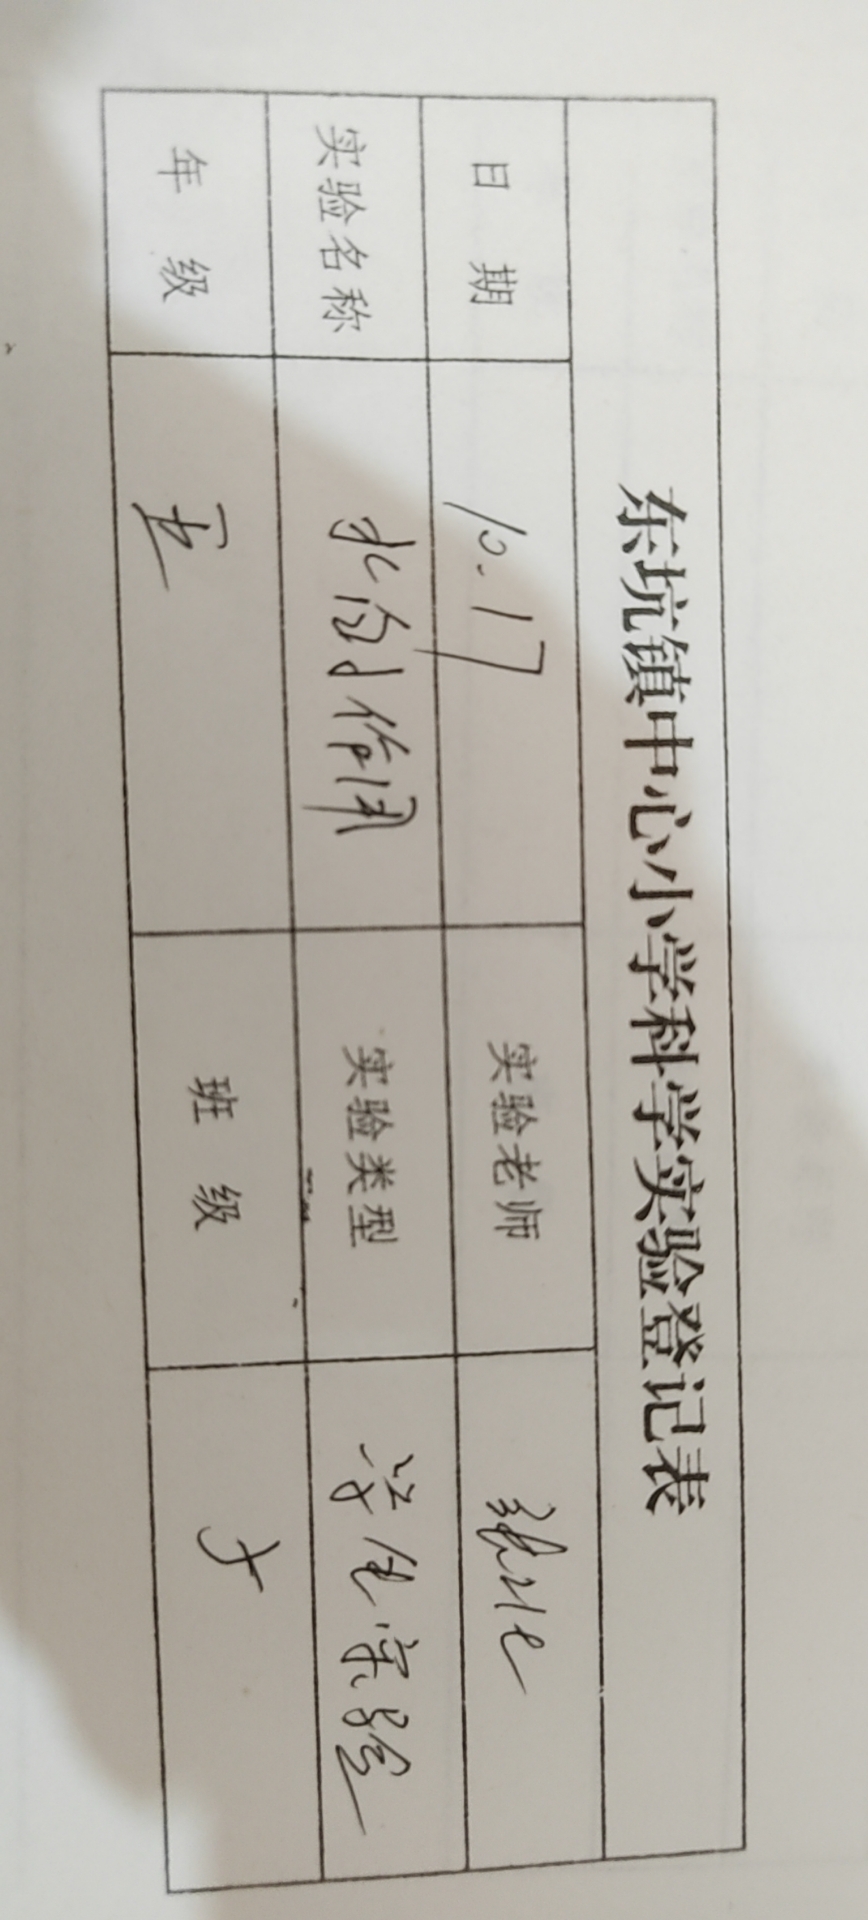 东坑镇中心小学科学实验登记表
日 期 10.17 实验老师
实验名称 水的作用 实验类型 学生实验
年 级 五 班 级